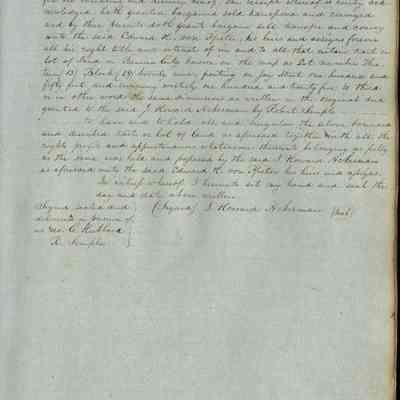 the receipt whereof is hereby ack-
nowledged hath granted bargained sold transferred and conveyed
and by these presents doth grant bargain sell transfer and convey
unto the said Edward H. von Pfister, his heirs and assigns forever
all his right title and interest of in and to all that certain tract or
lot of land in Benicia City known on the map as Lot number Thir
teen 13) Block (19) twenty varas fronting on Jay Street one hundred and
fifty feet and running northerly one hundred and twenty five to third
or in other words the same dimensions as written in the original deed
granted to the said J. Howard Ackerman by Robert Semple
to have and to hold all and singular the above premised
and described tract or lot of land as aforesaid together with all the
rights profits and appurtenances whatsoever thereunto belonging as fully
as the same was held and possessed by the said J. Howard Ackerman
as aforesaid unto the said Edward H. von Pfister his heirs and assigns.
In witness whereof I hereunto set my hand and seal the
day and date above written
Signed sealed and (Signed) J. Howard Ackerman (Seal)
delivered in presence of
as Geo. C. Hubbard
R. Semple